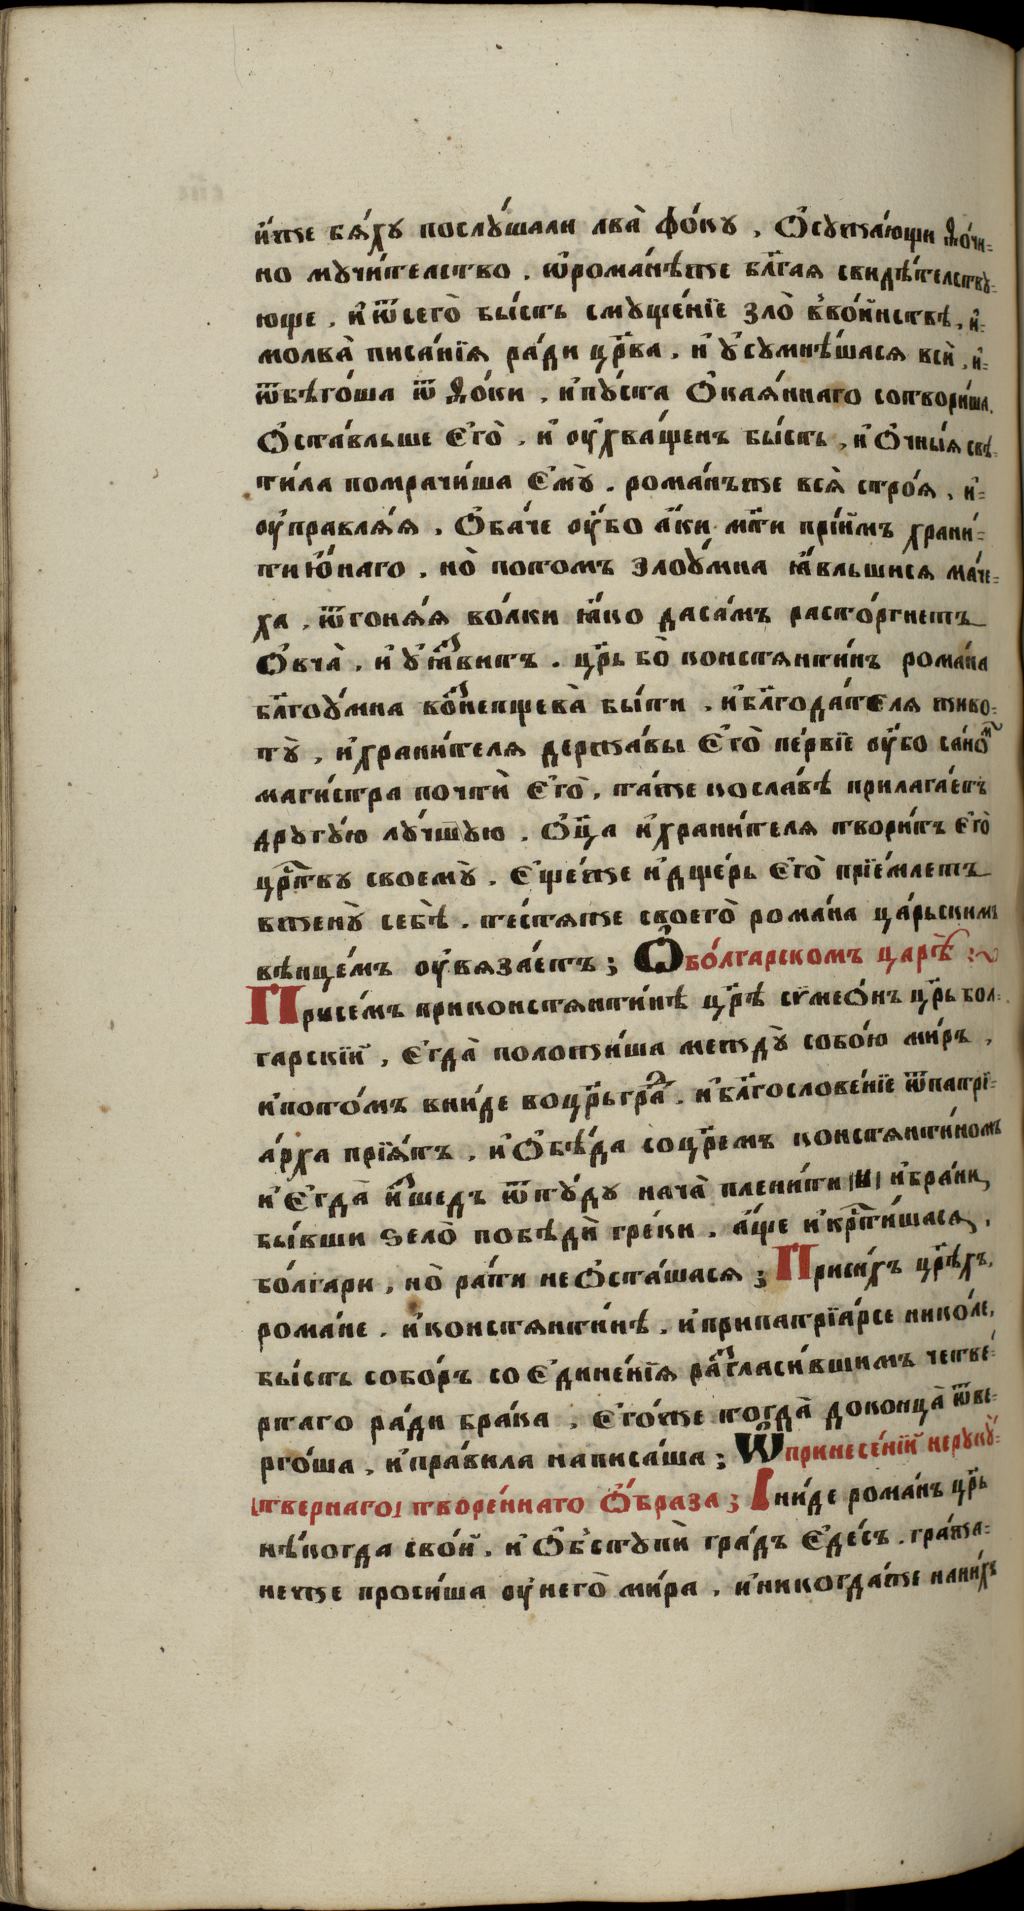 и́же бѧ́хꙋ послꙋ́шали лва̀ фо́кꙋ , Ѻ҆сꙋжа́ющи Ѳо́чи=
но мꙋчи́телство . ѡ҆рома́нѣже бл҃га́ѧ свидѣ́телствꙋ=
юще . и҆ ѿсего̀ бы́сть смꙋще́нїе зло̀ в̾во́инствѣ , и҆=
молва̀ писа́нїѧ ра́ди цр҃ка . и҆ ꙋ҆сꙋмнѣ́шасѧ всѝ , и҆=
ѿбѣго́ша ѿ Ѳо́ки , и҆пꙋ́ста Ѻ҆каѧ́ннаго сотвори́ша ,
Ѻ҆ста́вльше Є҆го̀ . и҆ оу҆хва́щенъ бы́сть , и҆ Ѻ҆чны́ѧ свѣ=
ти́ла помрачи́ша Є҆мꙋ̀ . рома́нъже всѧ̀ стро́ѧ , и҆=
оу҆правлѧ́ѧ , Ѻ҆ба́че оу҆́бо а҆́ки мт҃и прїи́мъ храни́=
тию́наго , но̀ потомъ злоꙋ́мна ꙗ҆́вльшисѧ ма́че=
ха , ѿгонѧ́ѧ во́лки ꙗ҆́ко дасамъ расто́ргнетъ
Ѻ҆вча̀ , и҆ ꙋ҆ꙗ҆́звитъ . цр҃ь бо̀ констѧнти́нъ рома́на
бл҃гоꙋ́мна во́инепщева̀ бы́ти , и҆бл҃года́телѧ живо=
тꙋ̀ , и҆храни́телѧ держа́вы Є҆го̀ пе́рвїе оу҆́бо са́номъ
маги́стра почтѝ Є҆го̀ , та́же кослав́ѣ прилага́етъ
дрꙋгꙋ́ю лꙋ́чшꙋю . Ѻ҆ц҃а и҆храни́телѧ твори́тъ Є҆го̀
цр҃твꙋ своемꙋ̀ . Є҆ще́же и҆дще́рь Є҆го̀ прїе́млетъ
вженꙋ̀ себѣ̀ . те́стѧже своего̀ рома́на ца́рьскимъ
вѣнце́мъ оу҆вѧза́етъ ; Ѡ҆бо́лгарскомъ царѣ̀ :~
Присе́мъ приконстѧнти́нѣ цр҃ѣ сѷмео́нъ цр҃ь бол=
гарскїи̑ , Є҆гда̀ положи́ша междꙋ̀ собо́ю ми́ръ ,
и҆пото́мъ вни́де воцр҃ьгра́дъ . и҆бл҃гослове́нїе ѿпатрї=
а́рха прїѧ́тъ , и҆ Ѻ҆бѣ́да соцр҃емъ констѧнти́номъ
и҆ Є҆гда̀ и҆зше́дъ ѿтꙋ́дꙋ нача̀ плени́ти [и] и҆бра́ни
бы́вши ѕело̀ побѣдѝ гре́ки . а҆́ще и҆ крⷭ҇ти́шасѧ ,
бо́лгари , но̀ ра́ти не Ѻ҆ста́шасѧ ; Приси́хъ цр҃ѣхъ ,
рома́не . и҆констѧнти́нѣ . и҆припатрїа́рсе нико́ле ,
бы́сть собо́ръ со Є҆дине́нїѧ разгласи́вшимъ четве=
ртаго ра́ди бра́ка , Є҆го́же тогда̀ доконца̀ ѿве=
рго́ша , и҆пра́вила написа́ша ; Ѡ҆принесе́нїи нерꙋкꙋ̀=
[твернаго] творе́ннаго Ѻ҆́браза ; І҆ни́де рома́нъ цр҃ь
нѣ́когда сво́и , и҆ Ѻ҆б̾стꙋпѝ гра́дъ Є҆де́съ . гра́жа=
неже проси́ша оу҆него̀ ми́ра , и҆никогда́же нани́хъ